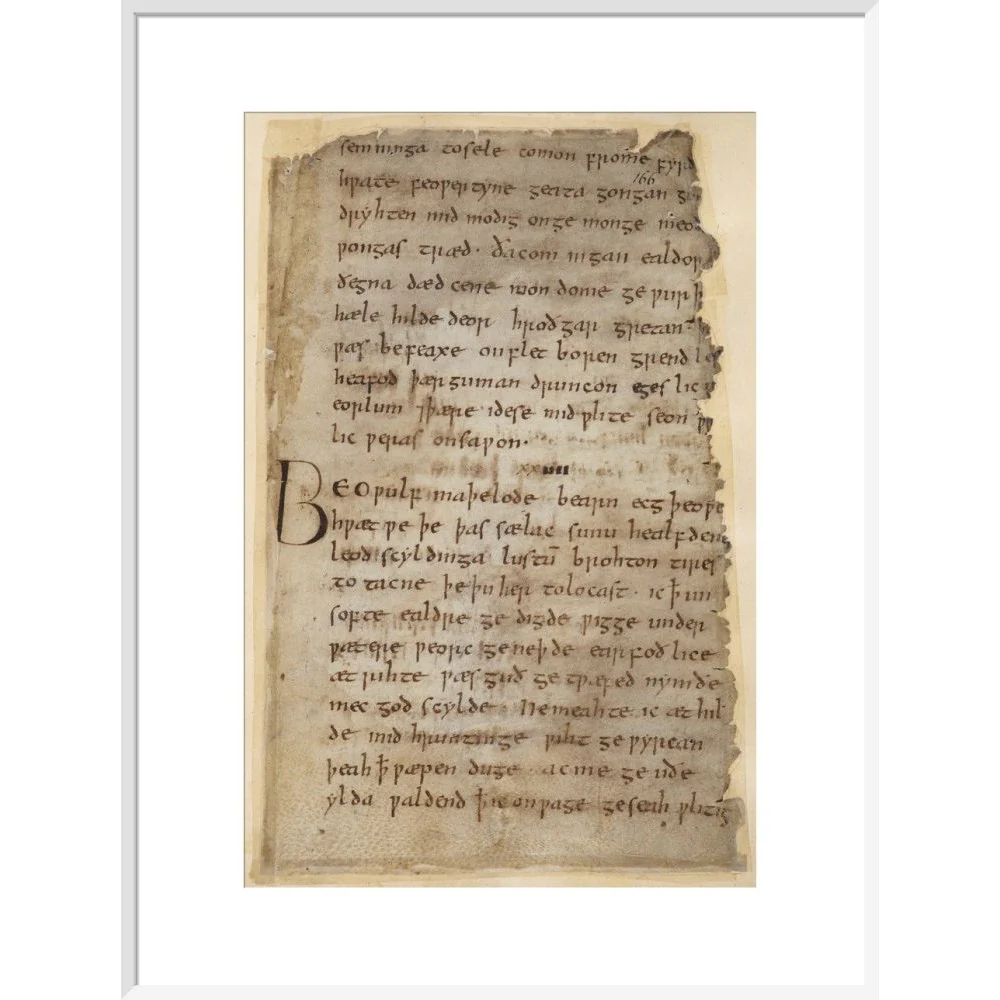 semninga tosele comon frome fyrd
166
hƿate feoƿertyne geata gongan
dryhten mid modig onge monge meo
ƿongas træd · ðacom ingan ealdor
ðegna dæd cene mon dome ge ƿurþ
hæle hilde deor hroðgar gretan
ƿæs be feaxe onflet boren grend les
heafod þær guman druncon egeslic
eorlum ⁊þære idese mid ƿlite seon
lic ƿeras onsaƿon·
xxiiii
BEOƿulf maþelode bearn ecg þeoƿe
hƿæt ƿe þe þas sælac sunu healfden
leod scyldinga lustū brohton tires
to tacne þe þu her tolocast · ic ꝥ un
softe ealdre ge digde ƿigge under
ƿætere ƿeorc geneþde earfoð lice
æt rihte ƿæs guð ge tƿæfed nymðe
mec god scylde · Ne meahte ic æt hil
de mid hruntinge ƿiht ge ƿyrcan
þeah ꝥ ƿæpen duge · ac me ge uðe
ylda ƿaldend ꝥ ic on ƿage geseah ƿlitig